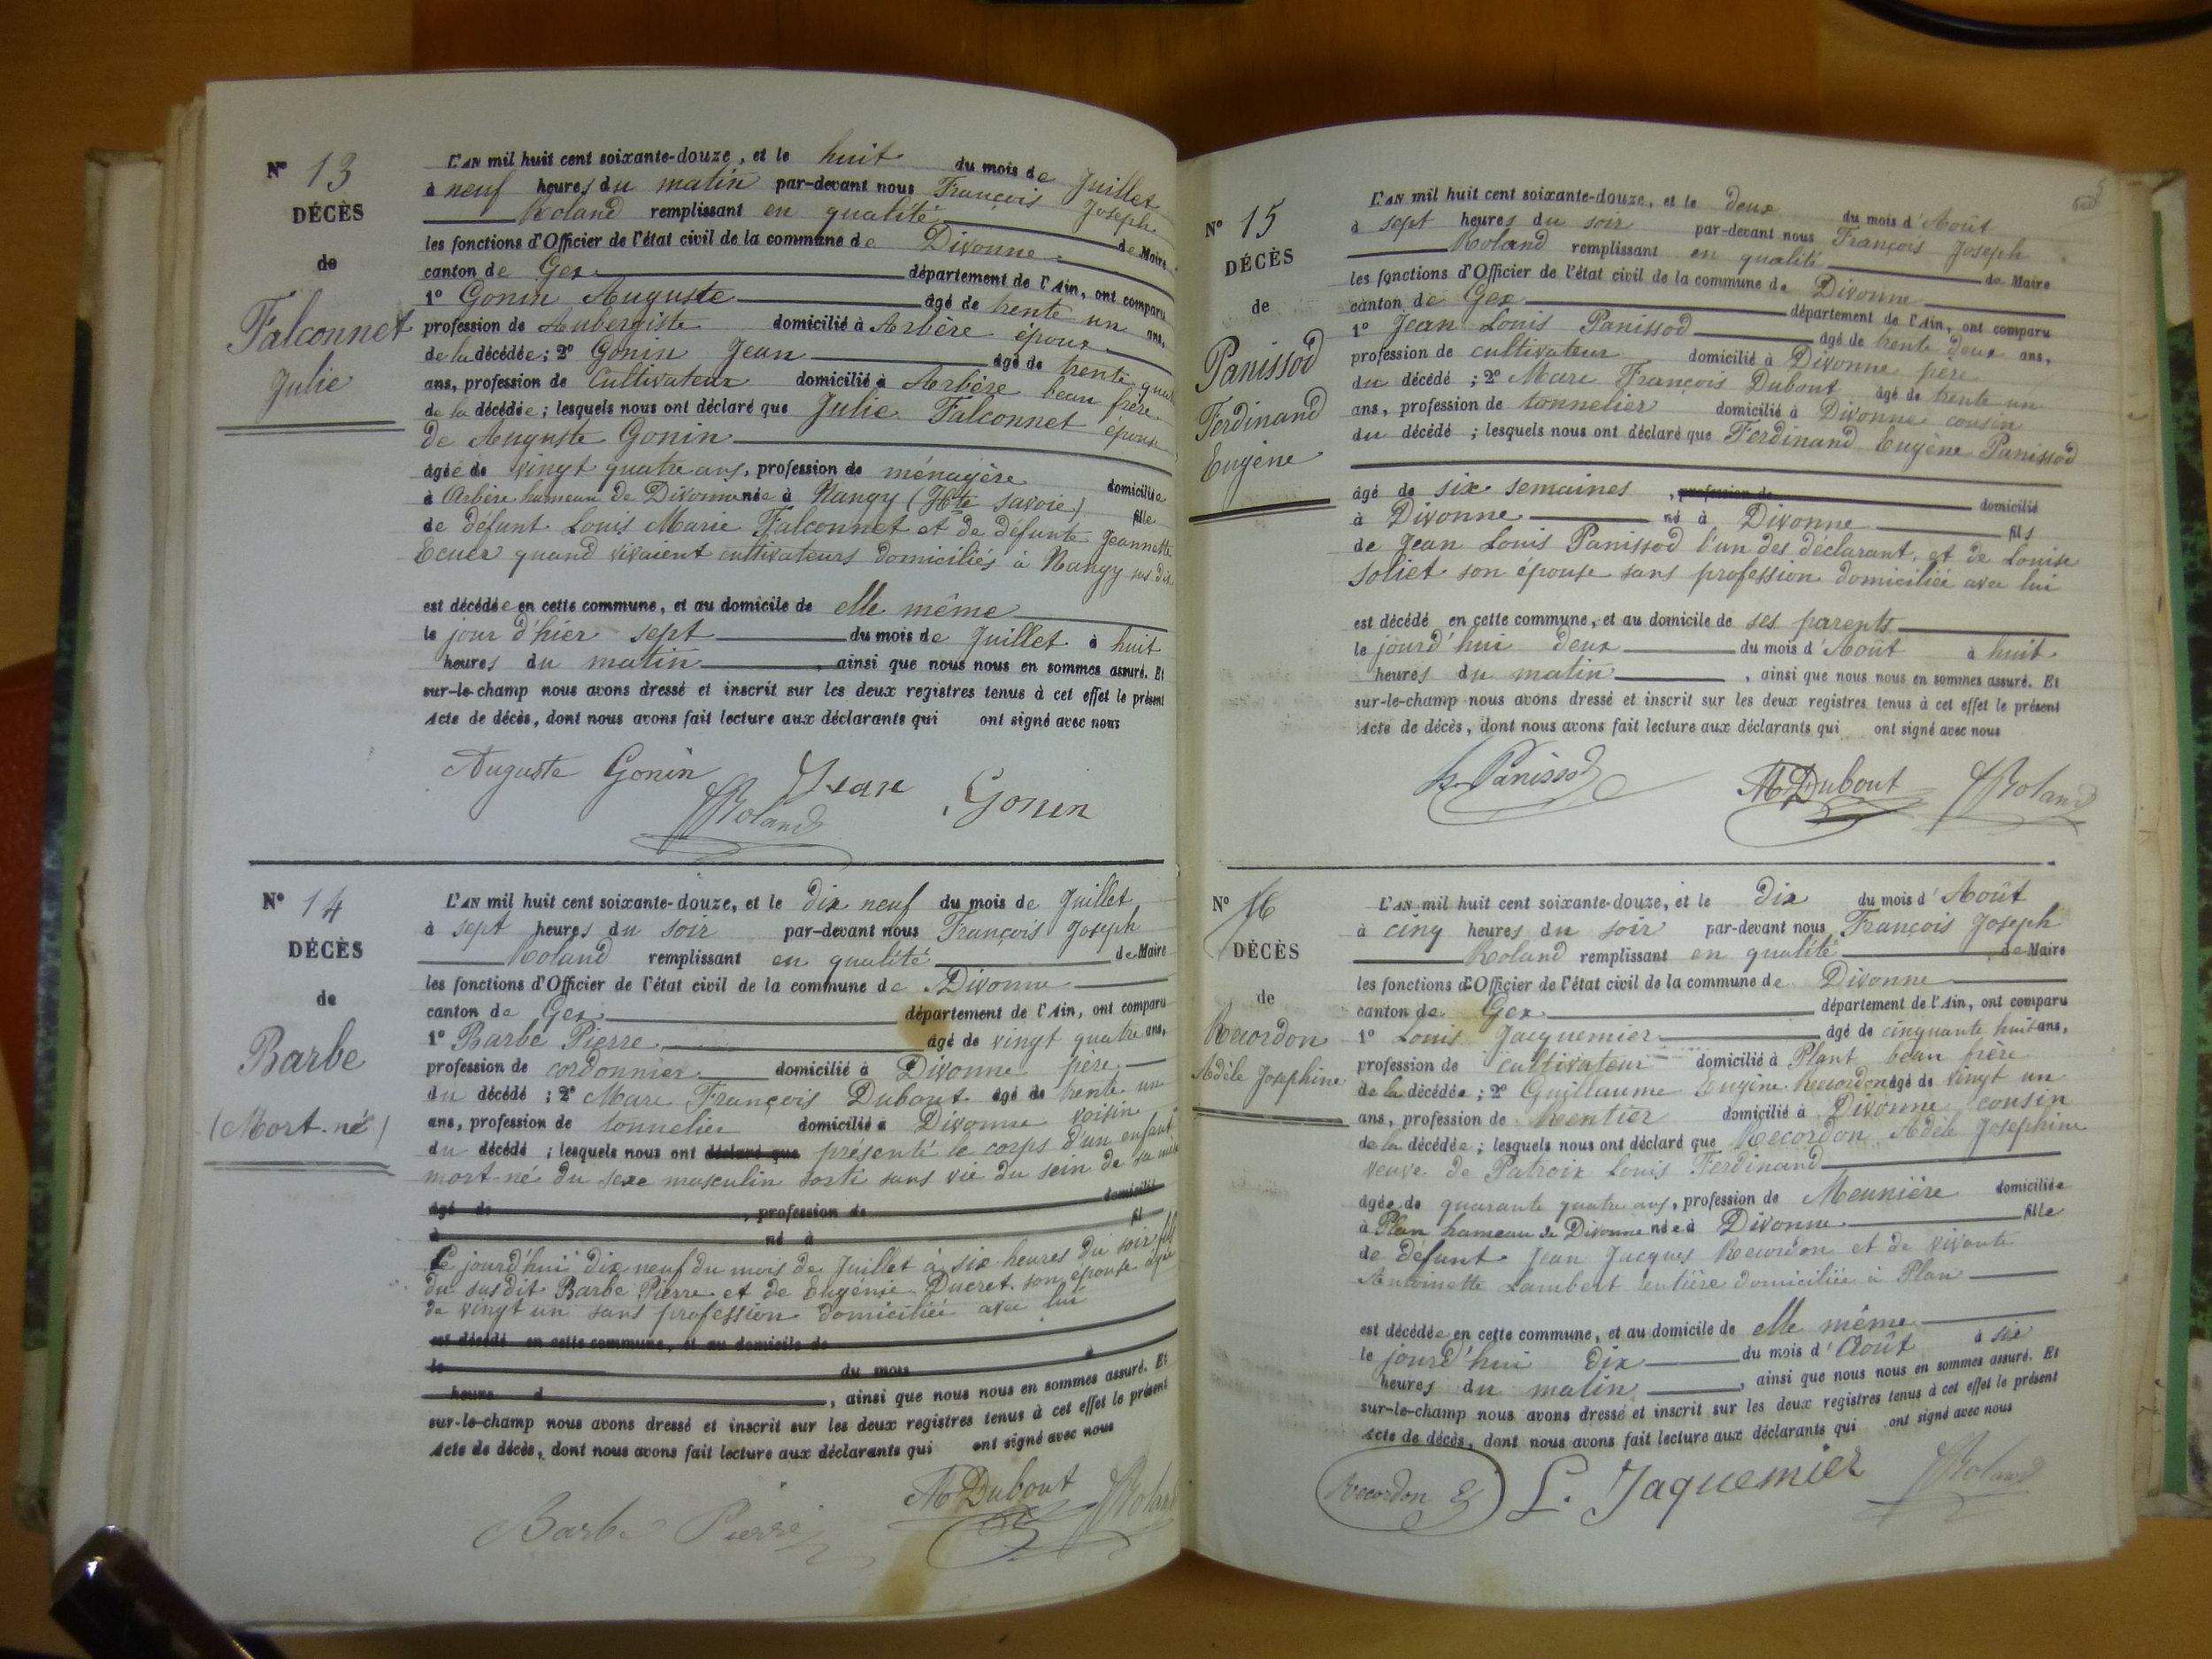 N° 13
DÉCÈS
de
Falconnet
Julie
L'AN mil huit cent soixante-douze, et le huit du mois de Juillet
à neuf heures du matin par-devant nous François Joseph
Roland remplissant en qualité de Maire
les fonctions d'Officier de l'état civil de la commune de Divonne
canton de Gex département de l'Ain, ont comparu
1° Gonin Auguste âgé de trente un ans,
profession de Aubergiste domicilié à Arbère époux
de la décédée; 2° Gonin Jean âgé de trente quatre
ans, profession de Cultivateur domicilié à Arbère beau frère
de la décédée; lesquels nous ont déclaré que Julie Falconnet épouse
de Auguste Gonin
âgée de vingt quatre ans, profession de ménagère domiciliée
à Arbère hameau de Divonne née à Nangy (Hte Savoie) fille
de défunt Louis Marie Falconnet et de défunte Jeannette
Ecuer quand vivaient cultivateurs domiciliés à Nangy sus dit
est décédée en cette commune, et au domicile de elle même
le jour d'hier sept du mois de Juillet à huit
heures du matin, ainsi que nous nous en sommes assuré. Et
sur-le-champ nous avons dressé et inscrit sur les deux registres tenus à cet effet le présent
Acte de décès, dont nous avons fait lecture aux déclarants qui ont signé avec nous
Auguste Gonin Jean Gonin
Roland
N° 14
DÉCÈS
de
Barbe
(Mort-né)
L'AN mil huit cent soixante-douze, et le dix neuf du mois de Juillet
à sept heures du soir par-devant nous François Joseph
Roland remplissant en qualité de Maire
les fonctions d'Officier de l'état civil de la commune de Divonne
canton de Gex département de l'Ain, ont comparu
1° Barbe Pierre âgé de vingt quatre ans,
profession de cordonnier domicilié à Divonne père
du décédé; 2° Marc François Dubout âgé de trente un
ans, profession de tonnelier domicilié à Divonne voisin
du décédé; lesquels nous ont déclaré que présenté le corps d'un enfant
mort-né du sexe masculin sorti sans vie du sein de sa mère
âgé de , profession de domicilié
à né à fil
le jourd'hui dix neuf du mois de Juillet à six heures du soir fils
du susdit Barbe Pierre et de Eugénie Ducret son épouse âgée
de vingt un sans profession domiciliée avec lui
est décédé en cette commune, et au domicile de
le du mois à
heure d , ainsi que nous nous en sommes assuré. Et
sur-le-champ nous avons dressé et inscrit sur les deux registres tenus à cet effet le présent
Acte de décès, dont nous avons fait lecture aux déclarants qui ont signé avec nous
Barbe Pierre M Dubout Roland
N° 15
DÉCÈS
de
Panissod
Ferdinand
Eugène
L'AN mil huit cent soixante-douze, et le deux du mois d'Août
à sept heures du soir par-devant nous François Joseph
Roland remplissant en qualité de Maire
les fonctions d'Officier de l'état civil de la commune de Divonne
canton de Gex département de l'Ain, ont comparu
1° Jean Louis Panissod âgé de trente deux ans,
profession de cultivateur domicilié à Divonne père
du décédé; 2° Marc François Dubout âgé de trente un
ans, profession de tonnelier domicilié à Divonne cousin
du décédé; lesquels nous ont déclaré que Ferdinand Eugène Panissod
âgé de six semaines, profession de domicilié
à Divonne né à Divonne fils
de Jean Louis Panissod l'un des déclarant et de Louise
Soliet son épouse sans profession domiciliée avec lui
est décédé en cette commune, et au domicile de ses parents
le jourd'hui deux du mois d'Août à huit
heures du matin, ainsi que nous nous en sommes assuré. Et
sur-le-champ nous avons dressé et inscrit sur les deux registres tenus à cet effet le présent
Acte de décès, dont nous avons fait lecture aux déclarants qui ont signé avec nous
Panissod M Dubout Roland
N° 16
DÉCÈS
de
Recordon
Adèle Josephine
L'AN mil huit cent soixante-douze, et le dix du mois d'Août
à cinq heures du soir par-devant nous François Joseph
Roland remplissant en qualité de Maire
les fonctions d'Officier de l'état civil de la commune de Divonne
canton de Gex département de l'Ain, ont comparu
1° Louis Jacquemier âgé de cinquante huit ans,
profession de cultivateur domicilié à Plant beau frère
de la décédée; 2° Guillaume Eugène Recordon âgé de vingt un
ans, profession de Rentier domicilié à Divonne cousin
de la décédée; lesquels nous ont déclaré que Recordon Adèle Josephine
veuve de Patroix Louis Ferdinand
âgée de quarante quatre ans, profession de Meunière domiciliée
à Plan hameau de Divonne née à Divonne fille
de défunt Jean Jacques Recordon et de vivante
Antoinette Lambert rentière domiciliée à Plan
est décédée en cette commune, et au domicile de elle même
le jourd'hui dix du mois d'Août à six
heures du matin, ainsi que nous nous en sommes assuré. Et
sur-le-champ nous avons dressé et inscrit sur les deux registres tenus à cet effet le présent
Acte de décès, dont nous avons fait lecture aux déclarants qui ont signé avec nous
Recordon E L. Jaquemier Roland